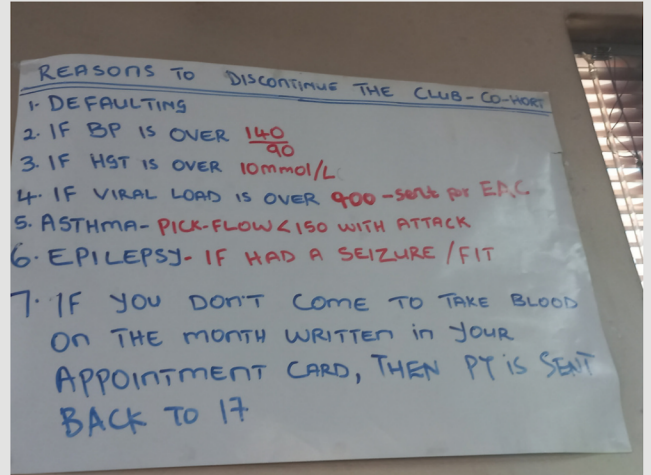 REASONS TO DISCONTINUE THE CLUB-CO-HORT
1. DEFAULTING
2. IF BP IS OVER 140/90
3. IF HGT IS OVER 10mmol/L
4. IF VIRAL LOAD IS OVER 900 - sent for EAC
5. ASTHMA - PICK-FLOW < 150 WITH ATTACK
6. EPILEPSY - IF HAD A SEIZURE / FIT
7. IF YOU DON'T COME TO TAKE BLOOD
ON THE MONTH WRITTEN in YOUR
APPOINTMENT CARD, THEN PT IS SENT
BACK TO 17